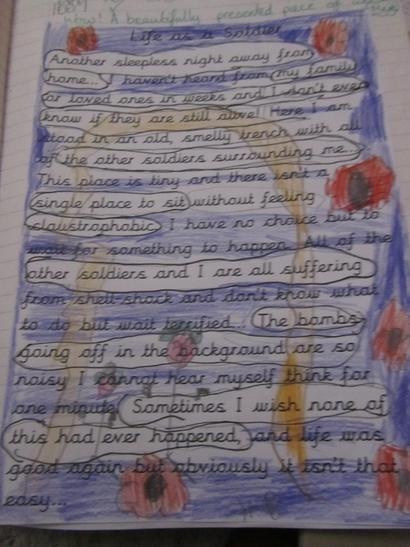 now! A beautifully presented piece of
Life as a Soldier
Another sleepless night away from
home... I haven't heard from my family
or loved ones in weeks and I don't even
know if they are still alive! Here I am
stood in an old, smelly trench with all
of the other soldiers surrounding me.
This place is tiny and there isn't a
single place to sit without feeling
claustrophobic. I have no choice but to
wait for something to happen. All of the
other soldiers and I are all suffering
from shell-shock and don't know what
to do but wait terrified... The bombs
going off in the background are so
noisy I cannot hear myself think for
one minute. Sometimes I wish none of
this had ever happened, and life was
good again but obviously it isn't that
easy...